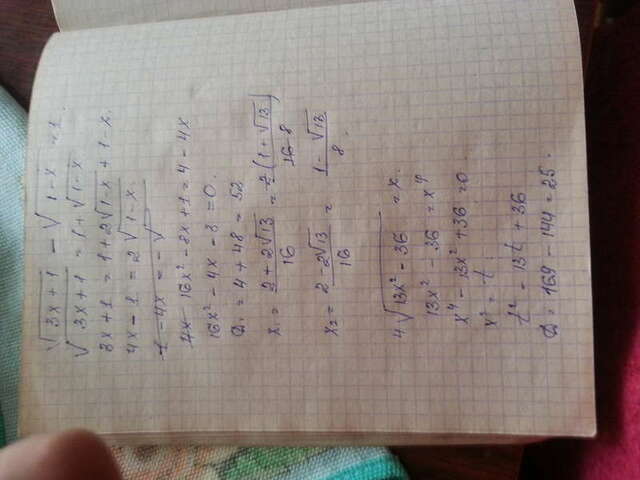 √3x+1 − √1−x = 1.
√3x+1 = 1 + √1−x
3x+1 = 1+2√1−x + 1−x.
4x−1 = 2√1−x.
1−4x = −√
4x 16x² − 8x+1 = 4−4x
16x² − 4x − 3 = 0.
D₁ = 4 + 48 = 52
x₁ = 2+2√13/16 = 2(1+√13)/16 8
x₂ = 2−2√13/16 = 1−√13/8.
4√13x² − 36 = x.
13x² − 36 = x⁴
x⁴ − 13x² + 36 = 0.
x² = t
t² − 13t + 36
D = 169 − 144 = 25.